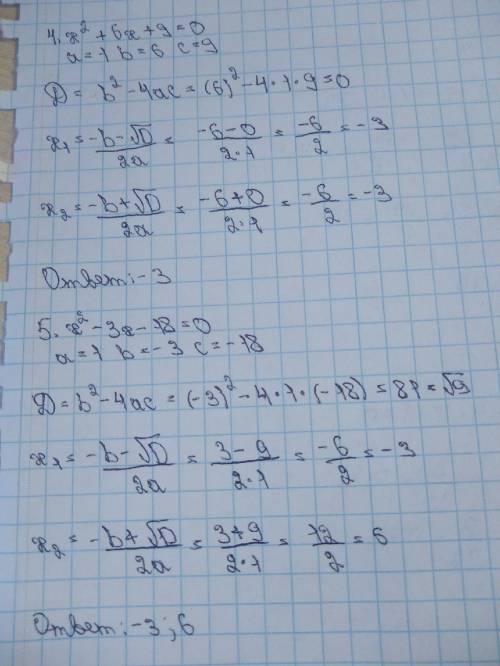 4. x² + 6x + 9 = 0
a = 1 b = 6 c = 9
D = b² - 4ac = (6)² - 4·1·9 = 0
x₁ = -b-√D / 2a = -6-0 / 2·1 = -6/2 = -3
x₂ = -b+√D / 2a = -6+0 / 2·1 = -6/2 = -3
Ответ: -3
5. x² - 3x - 18 = 0
a = 1 b = -3 c = -18
D = b² - 4ac = (-3)² - 4·1·(-18) = 81 = √9
x₁ = -b-√D / 2a = 3-9 / 2·1 = -6/2 = -3
x₂ = -b+√D / 2a = 3+9 / 2·1 = 12/2 = 6
Ответ: -3; 6